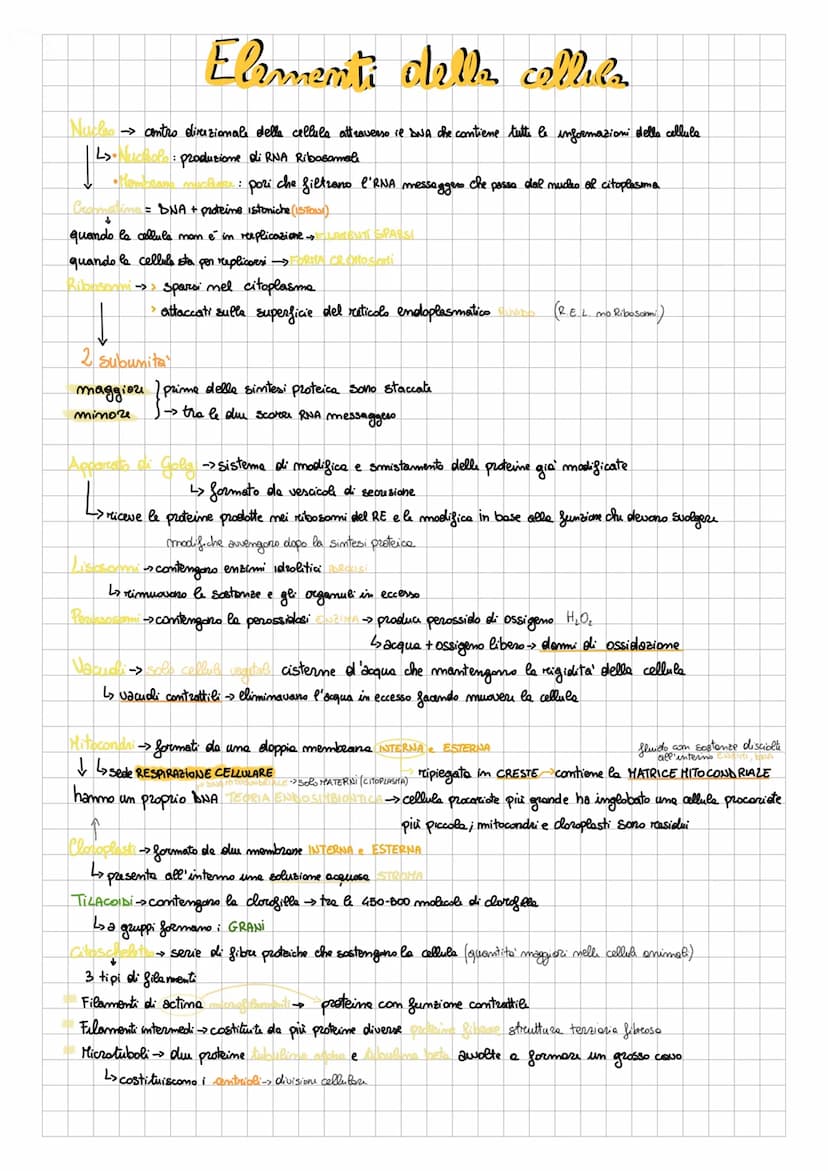 Elementi della cellula
Nucleo → centro direzionale della cellula attraverso il DNA che contiene tutte le informazioni della cellula
↳ • Nucleolo : produzione di RNA Ribosomale
• Membrana nucleare : pori che filtrano l'RNA messaggero che passa dal nucleo al citoplasma
Cromatina = DNA + proteine istoniche (ISTONI)
quando la cellula non è in replicazione → FILAMENTI SPARSI
quando la cellula sta per replicarsi → FORMA CROMOSOMI
Ribosomi → > sparsi nel citoplasma
> attaccati sulla superficie del reticolo endoplasmatico RUVIDO (R.E.L. no Ribosomi)
2 subunità
maggiore } prima della sintesi proteica sono staccate
minore } → tra le due scorre RNA messaggero
Apparato di Golgi → sistema di modifica e smistamento delle proteine già modificate
↳ formato da vescicole di secrezione
↳ riceve le proteine prodotte nei ribosomi del RE e le modifica in base alla funzione che devono svolgere
modifiche avvengono dopo la sintesi proteica
Lisosomi → contengono enzimi idrolitici IDROLISI
↳ rimuovono le sostanze e gli organuli in eccesso
Perossisomi → contengono la perossidasi ENZIMA → produce perossido di ossigeno H₂O₂
↳ acqua + ossigeno libero → danni di ossidazione
Vacuoli → solo cellule vegetali cisterne d'acqua che mantengono la rigidità della cellula
↳ vacuoli contrattili → eliminavano l'acqua in eccesso facendo muovere la cellula
Mitocondri → formati da una doppia membrana INTERNA e ESTERNA
fluido con sostanze disciolte
all'interno
↳ sede RESPIRAZIONE CELLULARE
→ SOLO MATERNI (CITOPLASMA)
→ ripiegata in CRESTE → contiene la MATRICE MITOCONDRIALE
hanno un proprio DNA TEORIA ENDOSIMBIONTICA → cellula procariote più grande ha inglobato una cellula procariote
più piccola; mitocondri e cloroplasti sono residui
Cloroplasti → formato da due membrane INTERNA e ESTERNA
↳ presenta all'interno una soluzione acquosa STROMA
TILACOIDI → contengono la clorofilla → tra le 450-600 molecole di clorofilla
↳ a gruppi formano i GRANI
Citoscheletro → serie di fibre proteiche che sostengono la cellula (quantità maggiori nelle cellule animali)
3 tipi di filamenti
Filamenti di actina microfilamenti → proteina con funzione contrattile
Filamenti intermedi → costituiti da più proteine diverse proteine fibrose struttura terziaria fibrosa
Microtuboli → due proteine tubulina alpha e tubulina beta avvolte a formare un grosso cavo
↳ costituiscono i centrioli → divisione cellulare